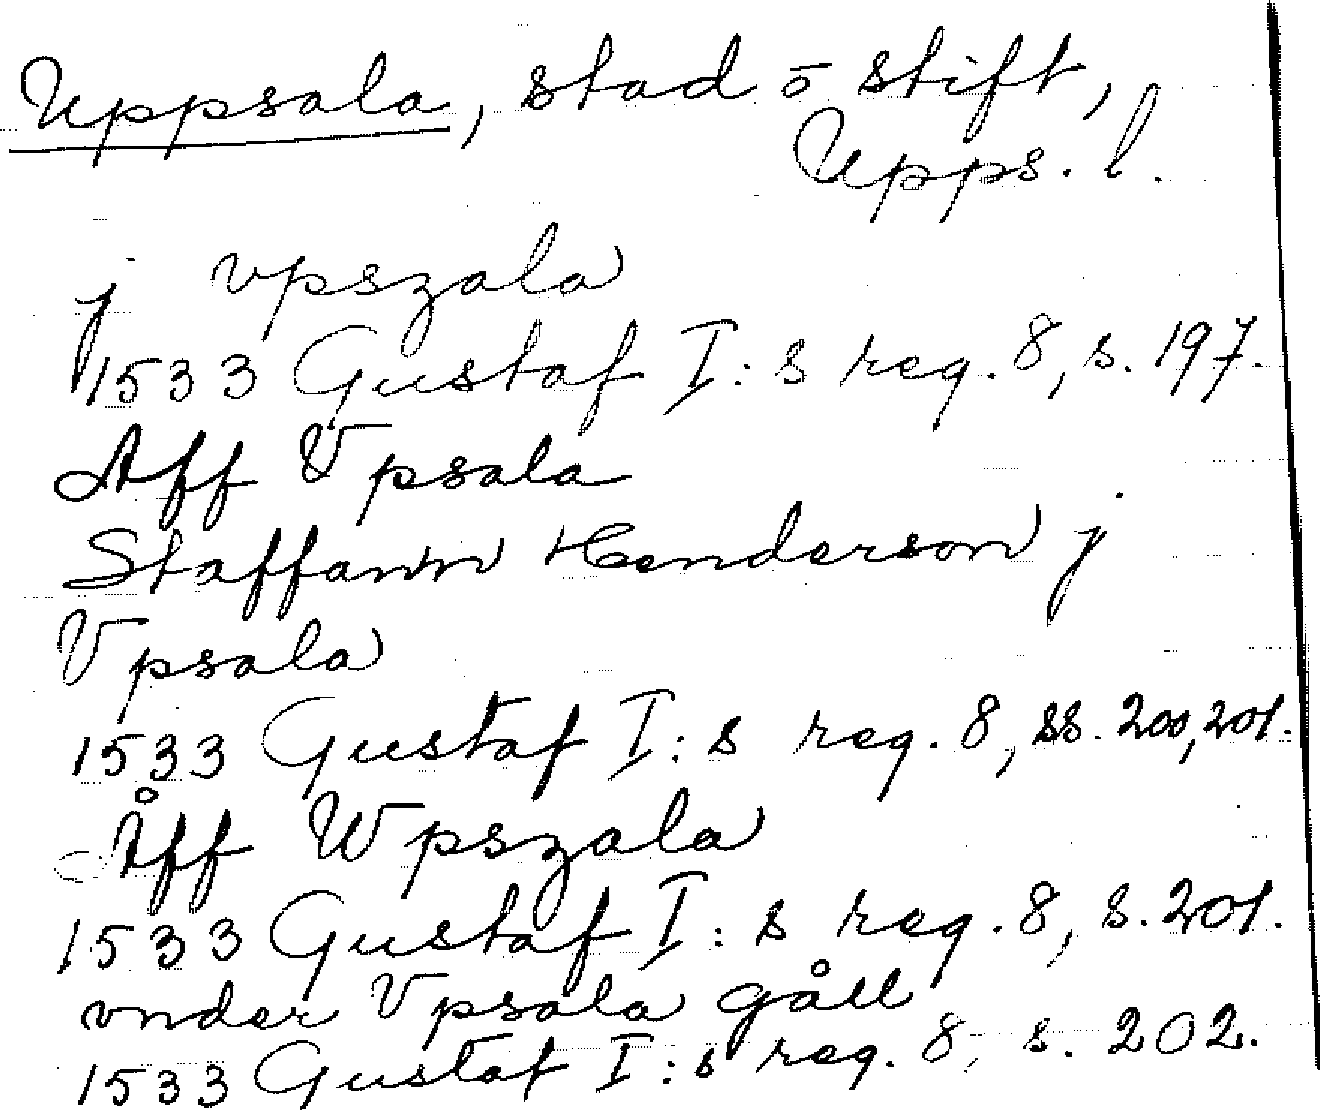 Uppsala, stad o stift,
Upps. l.
j vpszala
1533 Gustaf I:s reg. 8, s. 197.
Aff Vpsala
Staffann Henderson j
Vpsala
1533 Gustaf I:s reg. 8, ss. 200, 201.
Åff Wpszala
1533 Gustaf I:s reg. 8, s. 201.
vnder Vpsala gåll
1533 Gustaf I:s reg. 8, s. 202.